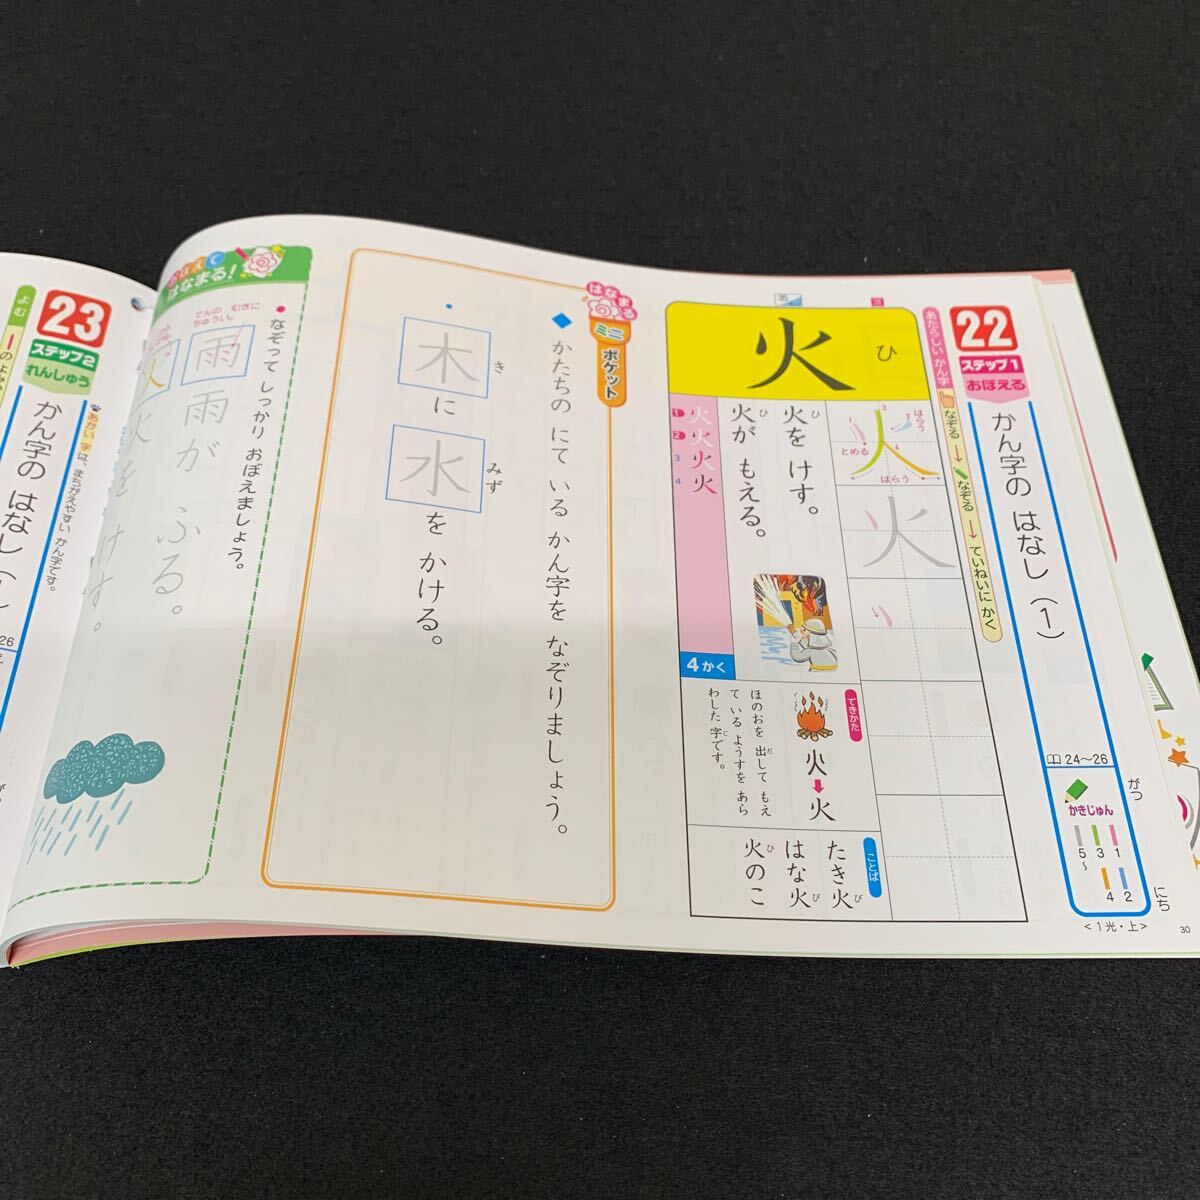 22
ステップ1
おぼえる
かん字の はなし(1)
24〜26
かきじゅん
1
2
3
4
5〜
あたらしい かん字
なぞる→なぞる→ていねいに かく
火
ひ
3
はらう
とめる
4
はらう
火
火を けす。
ひ
火が もえる。
ひ
1 火
2 火
3 火
4 火
4かく
できかた
火
ほのおを 出して もえ
だ
て いる ようすを あら
わした 字です。
じ
ことば
たき火
び
はな火
び
火のこ
ひ
35
はなまる
ミニ
ポケット
◆かたちの にて いる かん字を なぞりましょう。
・木に 水を かける。
き
みず
はなまる!
●なぞって しっかり おぼえましょう。
てんの むきに
ちゅうい。
雨 雨が ふる。
火 火を けす。
23
ステップ2
れんしゅう
かん字の はなし(1
26
あかい字は、まちがえやすい かん字です。
よむ
のよみ
がつ
にち
<1光・上>
30